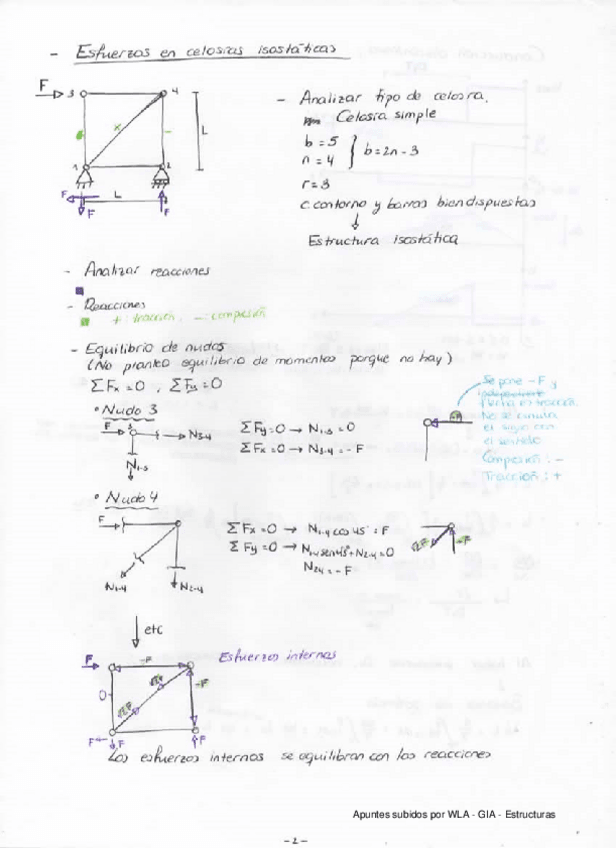 - Esfuerzos en celosías isostáticas
F
3
4
L
1
2
F
L
F
F
- Analizar tipo de celosía.
Celosía simple
b = 5
n = 4
b = 2n - 3
r = 3
c. contorno y barras bien dispuestas
↓
Estructura isostática
- Analizar reacciones
- Reacciones
+ tracción, - compresión
- Equilibrio de nudos
(No planteo equilibrio de momentos porque no hay)
ΣFx = 0, ΣFy = 0
• Nudo 3
F
3
N3-4
N1-3
ΣFy = 0 → N1-3 = 0
ΣFx = 0 → N3-4 = -F
Se pone -F y
flecha es tracción.
No se
el signo con
el sentido
Compresión: -
Tracción: +
• Nudo 4
F
N1-4
N2-4
ΣFx = 0 → N1-4 cos 45° = F
ΣFy = 0 → N1-4 sen 45° + N2-4 = 0
N24 = -F
√2F
-F
↓ etc
F
-F
Esfuerzos internos
0
√2F
-F
F
F
F
Los esfuerzos internos se equilibran con las reacciones
Apuntes subidos por WLA - GIA - Estructuras
- 2 -